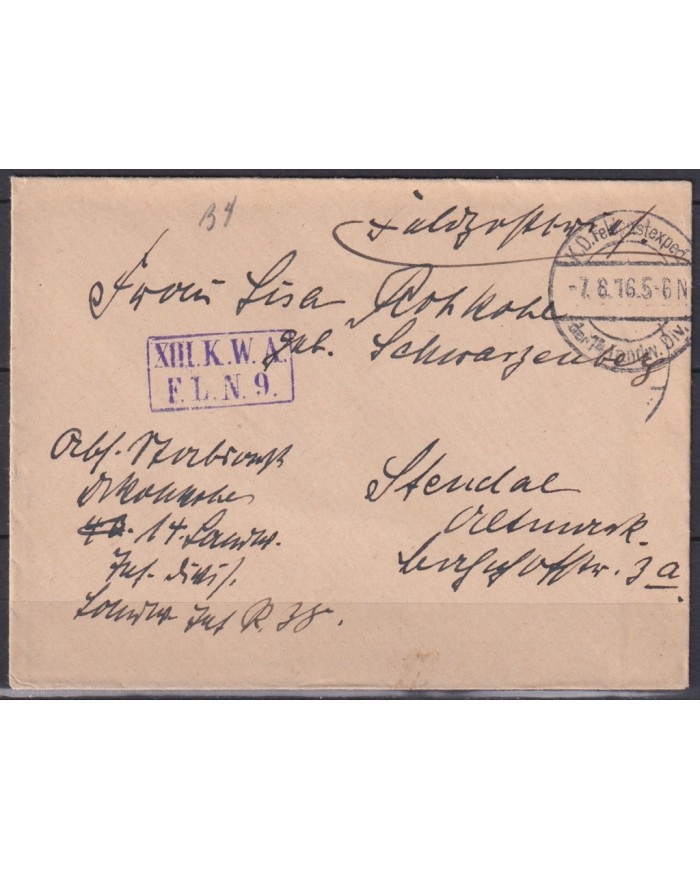 B4
Feldpostbrief.
K.D.Feldpostexped.
-7.8.16.5-6N
der 14 Landw. Div.
Frau Lisa Rohkohl
geb. Schwarzenberg
XIII. K. W. A.
F. L. N. 9.
Stendal
Altmark.
Bahnhofstr. 3a.
Abs. Stabsarzt
Rohkohl
14. Landw.
Inf. Divis.
Landw Inf R. 38.